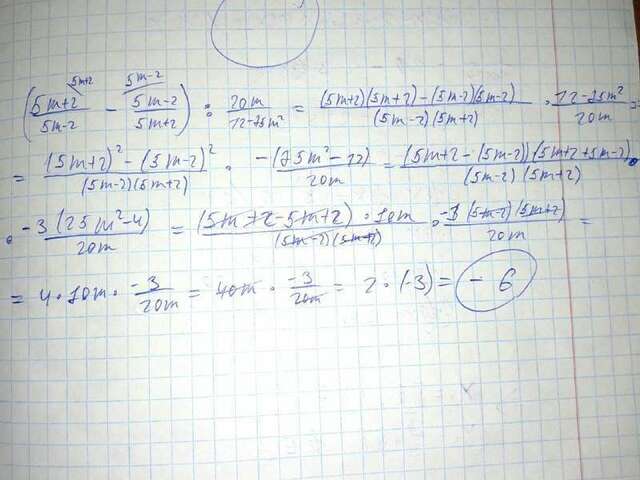 5m+2 5m-2
(5m+2/5m-2 - 5m-2/5m+2) : 20m/12-75m² = (5m+2)(5m+2)-(5m-2)(5m-2)/(5m-2)(5m+2) · 12-75m²/20m =
= (5m+2)²-(5m-2)²/(5m-2)(5m+2) · -(75m²-12)/20m = (5m+2-(5m-2))(5m+2+5m-2)/(5m-2)(5m+2) ·
· -3(25m²-4)/20m = (5m+2-5m+2)·10m/(5m-2)(5m+2) · -3(5m-2)(5m+2)/20m =
= 4·10m · -3/20m = 40m · -3/20m = 2·(-3) = -6